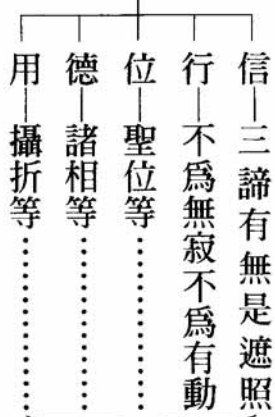 信—三諦有無是遮照
行—不爲無寂不爲有動
位—聖位等⋯⋯⋯⋯
德—諸相等⋯⋯⋯⋯
用—攝折等⋯⋯⋯⋯